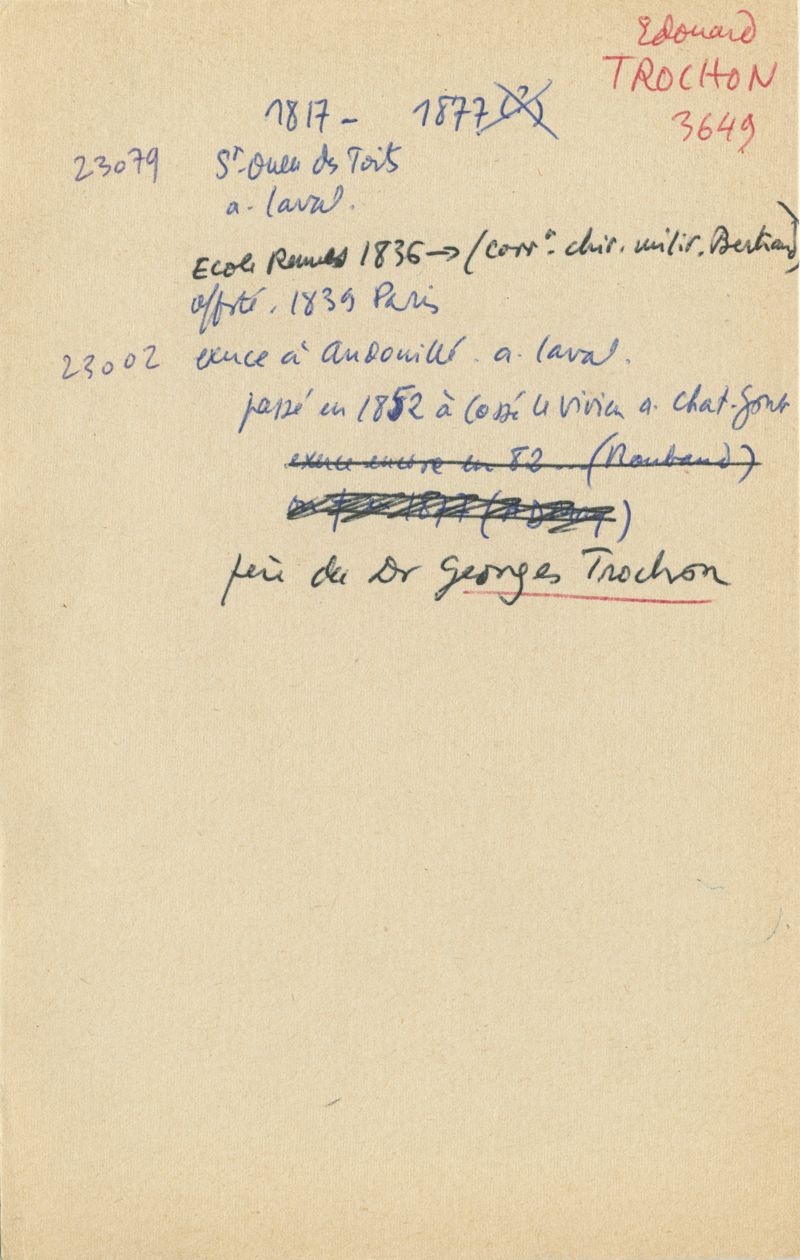 Edouard
TROCHON
3649
1817 - 1877 (?)
23079 St-Ouen des Toits
a. Laval.
Ecole Rennes 1836 → (corr. chir. milit. Bertrand)
1839 Paris
23002 exerce à Andouillé. a. Laval.
passé en 1852 à Cossé le Vivien a. Chat-Gont
exerce encore en 82 ... (Roubaud)
1877
père du Dr Georges Trochon